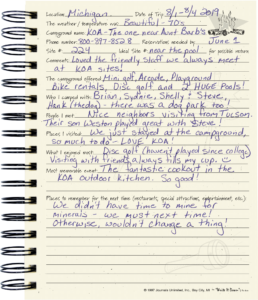 Location Michigan Date of Trip 8/1-8/4 2019
The weather / temperature was Beautiful - 70s
Campground name KOA - The one near Aunt Barb's
Phone number 800-397-8528 Reservation needed by June 1
Site # 224 Ideal Site # near the pool, for next time
Comments Loved the friendly staff we always meet
at KOA sites!
The campground offered Mini golf, Arcade, Playground
bike rentals, Disc golf and 2 HUGE Pools!
Who I camped with Brian, Sydnie, Shelly & Steve,
Hank (the dog) - there was a dog park too!
People I met Nice neighbors visiting from Tucson.
Their son Weston played great with Steve!
Places I visited We just stayed at the campground,
so much to do - LOVE KOA!
What I enjoyed most Disc golf (haven't played since college)
Visiting with friends always fills my cup.
Most memorable event The fantastic cookout in the
KOA outdoor kitchen. So good!
Places to remember for the next time (restaurant, special attraction, entertainment, etc.)
We didn't have time to mine for
minerals - we must next time!
Otherwise, wouldn't change a thing!